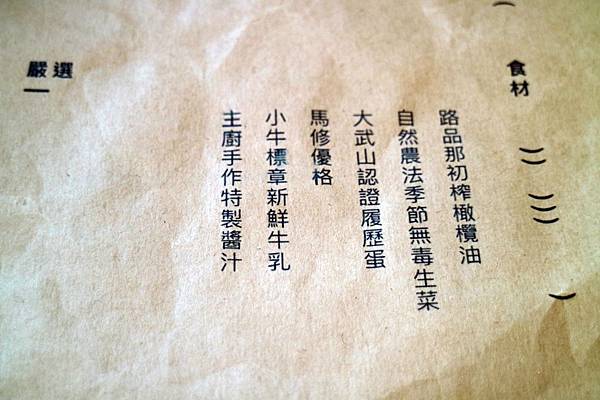 食材
路品那初榨橄欖油
自然農法季節無毒生菜
大武山認證履歷蛋
馬修優格
小牛標章新鮮牛乳
主廚手作特製醬汁
嚴選